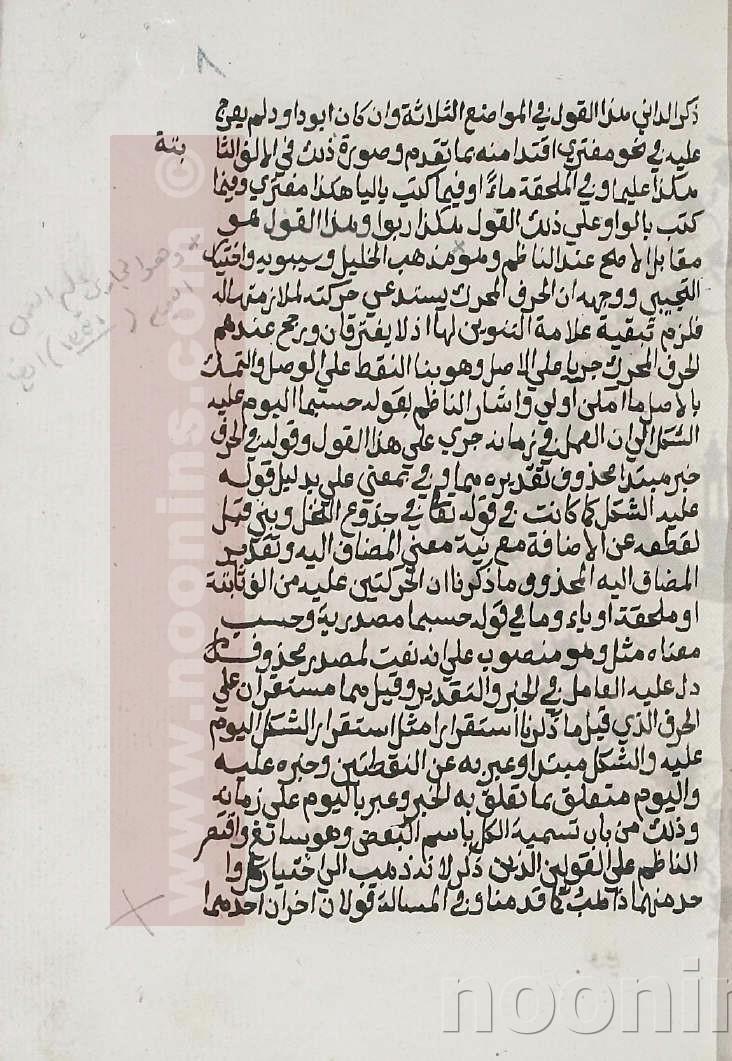 ٨
ذكر الداني هذا القول في المواضع الثلاثة وان كان ابو داود لم يعرج
عليه في نحو مفتري اقتدا منه بما تقدم وصورة ذلك في الالف الثا
بتة
هكذا عليما وفي الملحقة ماءً او فيما كتب باليا هكذا مفتري وفيما
كتب بالواو علي ذلك القول هكذا ربوا وهذا القول هو
مقابل الاصح عند الناظم وهو مذهب الخليل وسيبويه واختيار
التجيبي ووجهه ان الحرف المحرك يستدعي حركته لملازمتها له
فلزم تبقية علامة التنوين لها اذ لا يفترقان ورجح عندهم
لحرف المحرك جريا علي الاصل وهو بنا النقط علي الوصل والتمسك
بالاصل ما امكن اولي واشار الناظم بقوله حسبما اليوم عليه
الشكل الي ان العمل في زمانه جري علي هذا القول وقوله في الحرف
خبر مبتدا محذوف تقديره هما وفي بمعني علي بدليل قوله
عليه الشكل كما كانت في قوله تعا في جذوع النخل وبني قبل
لقطعه عن الاضافة مع نية معني المضاف اليه وتقدير
المضاف اليه المحذوف ما ذكرنا ان الحركتين عليه من الف ثابتة
او ملحقة او ياء وما في قوله حسبما مصدرية وحسب
معناه مثل وهو منصوب علي انه نعت لمصدر محذوف
دل عليه العامل في الخبر والتقدير وقيل هما مستقران علي
الحرف الذي قبل ما ذكرنا استقرارا مثل استقرار الشكل اليوم
عليه والشكل مبتدا وعبر به عن النقطتين وخبره عليه
واليوم متعلق بما تعلق به الخبر وعبر باليوم علي زمانه
وذلك من باب تسمية الكل باسم البعض وهو سائغ واقتصر
الناظم علي القولين الذين ذكر لانه ذهب الي اختيار كل وا
حد منهما ذاهب كما قدمنا وفي المسالة قولان اخران احدهما
www.noonins.com ©
noonin